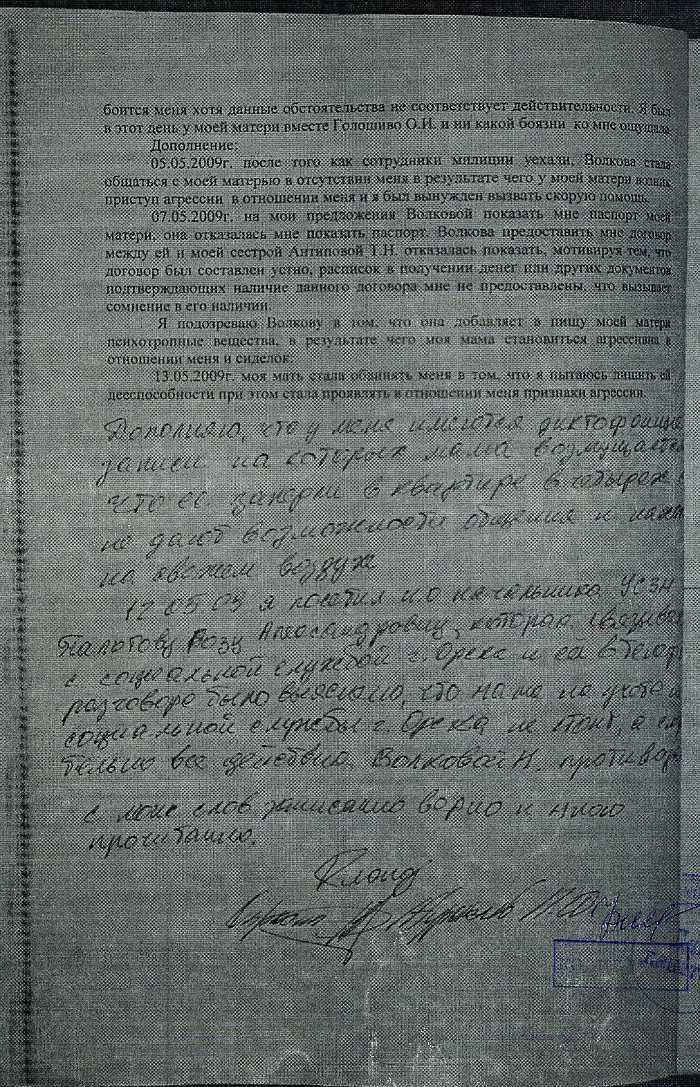 боится меня хотя данные обстоятельства не соответствует действительности. Я был
в этот день у моей матери вместе Голошиво О.И. и ни какой боязни ко мне ощущала
Дополнение:
05.05.2009г. после того как сотрудники милиции уехали, Волкова стала
общаться с моей матерью в отсутствии меня в результате чего у моей матери возник
приступ агрессии в отношении меня и я был вынужден вызвать скорую помощь.
07.05.2009г. на мои предложения Волковой показать мне паспорт моей
матери, она отказалась мне показать паспорт. Волкова предоставить мне договор
между ей и моей сестрой Антиповой Т.Н. отказалась показать, мотивируя тем, что
договор был составлен устно, расписок в получении денег или других документов
подтверждающих наличие данного договора мне не предоставлены, что вызывает
сомнение в его наличии.
Я подозреваю Волкову в том, что она добавляет в пищу моей матери
психотропные вещества, в результате чего моя мама становиться агрессивна в
отношении меня и сиделок;
13.05.2009г. моя мать стала обвинять меня в том, что я пытаюсь лишить её
дееспособности при этом стала проявлять в отношении меня признаки агрессии.
Дополняю, что у меня имеются диктофонные
записи на которых мама возмущается
что её заперли в квартире в четырех
не дают возможности общения и
на свежем воздухе
12 05 09 я посетил и о начальника УСЗН
Розу Александровну, которая
с социальной службой г. Орска и ей в
разговоре было выяснено, что на учете
социальной службы г. Орска не стоит, а
только все действия Волковой Н.
с моих слов записано верно и мною
прочитано.